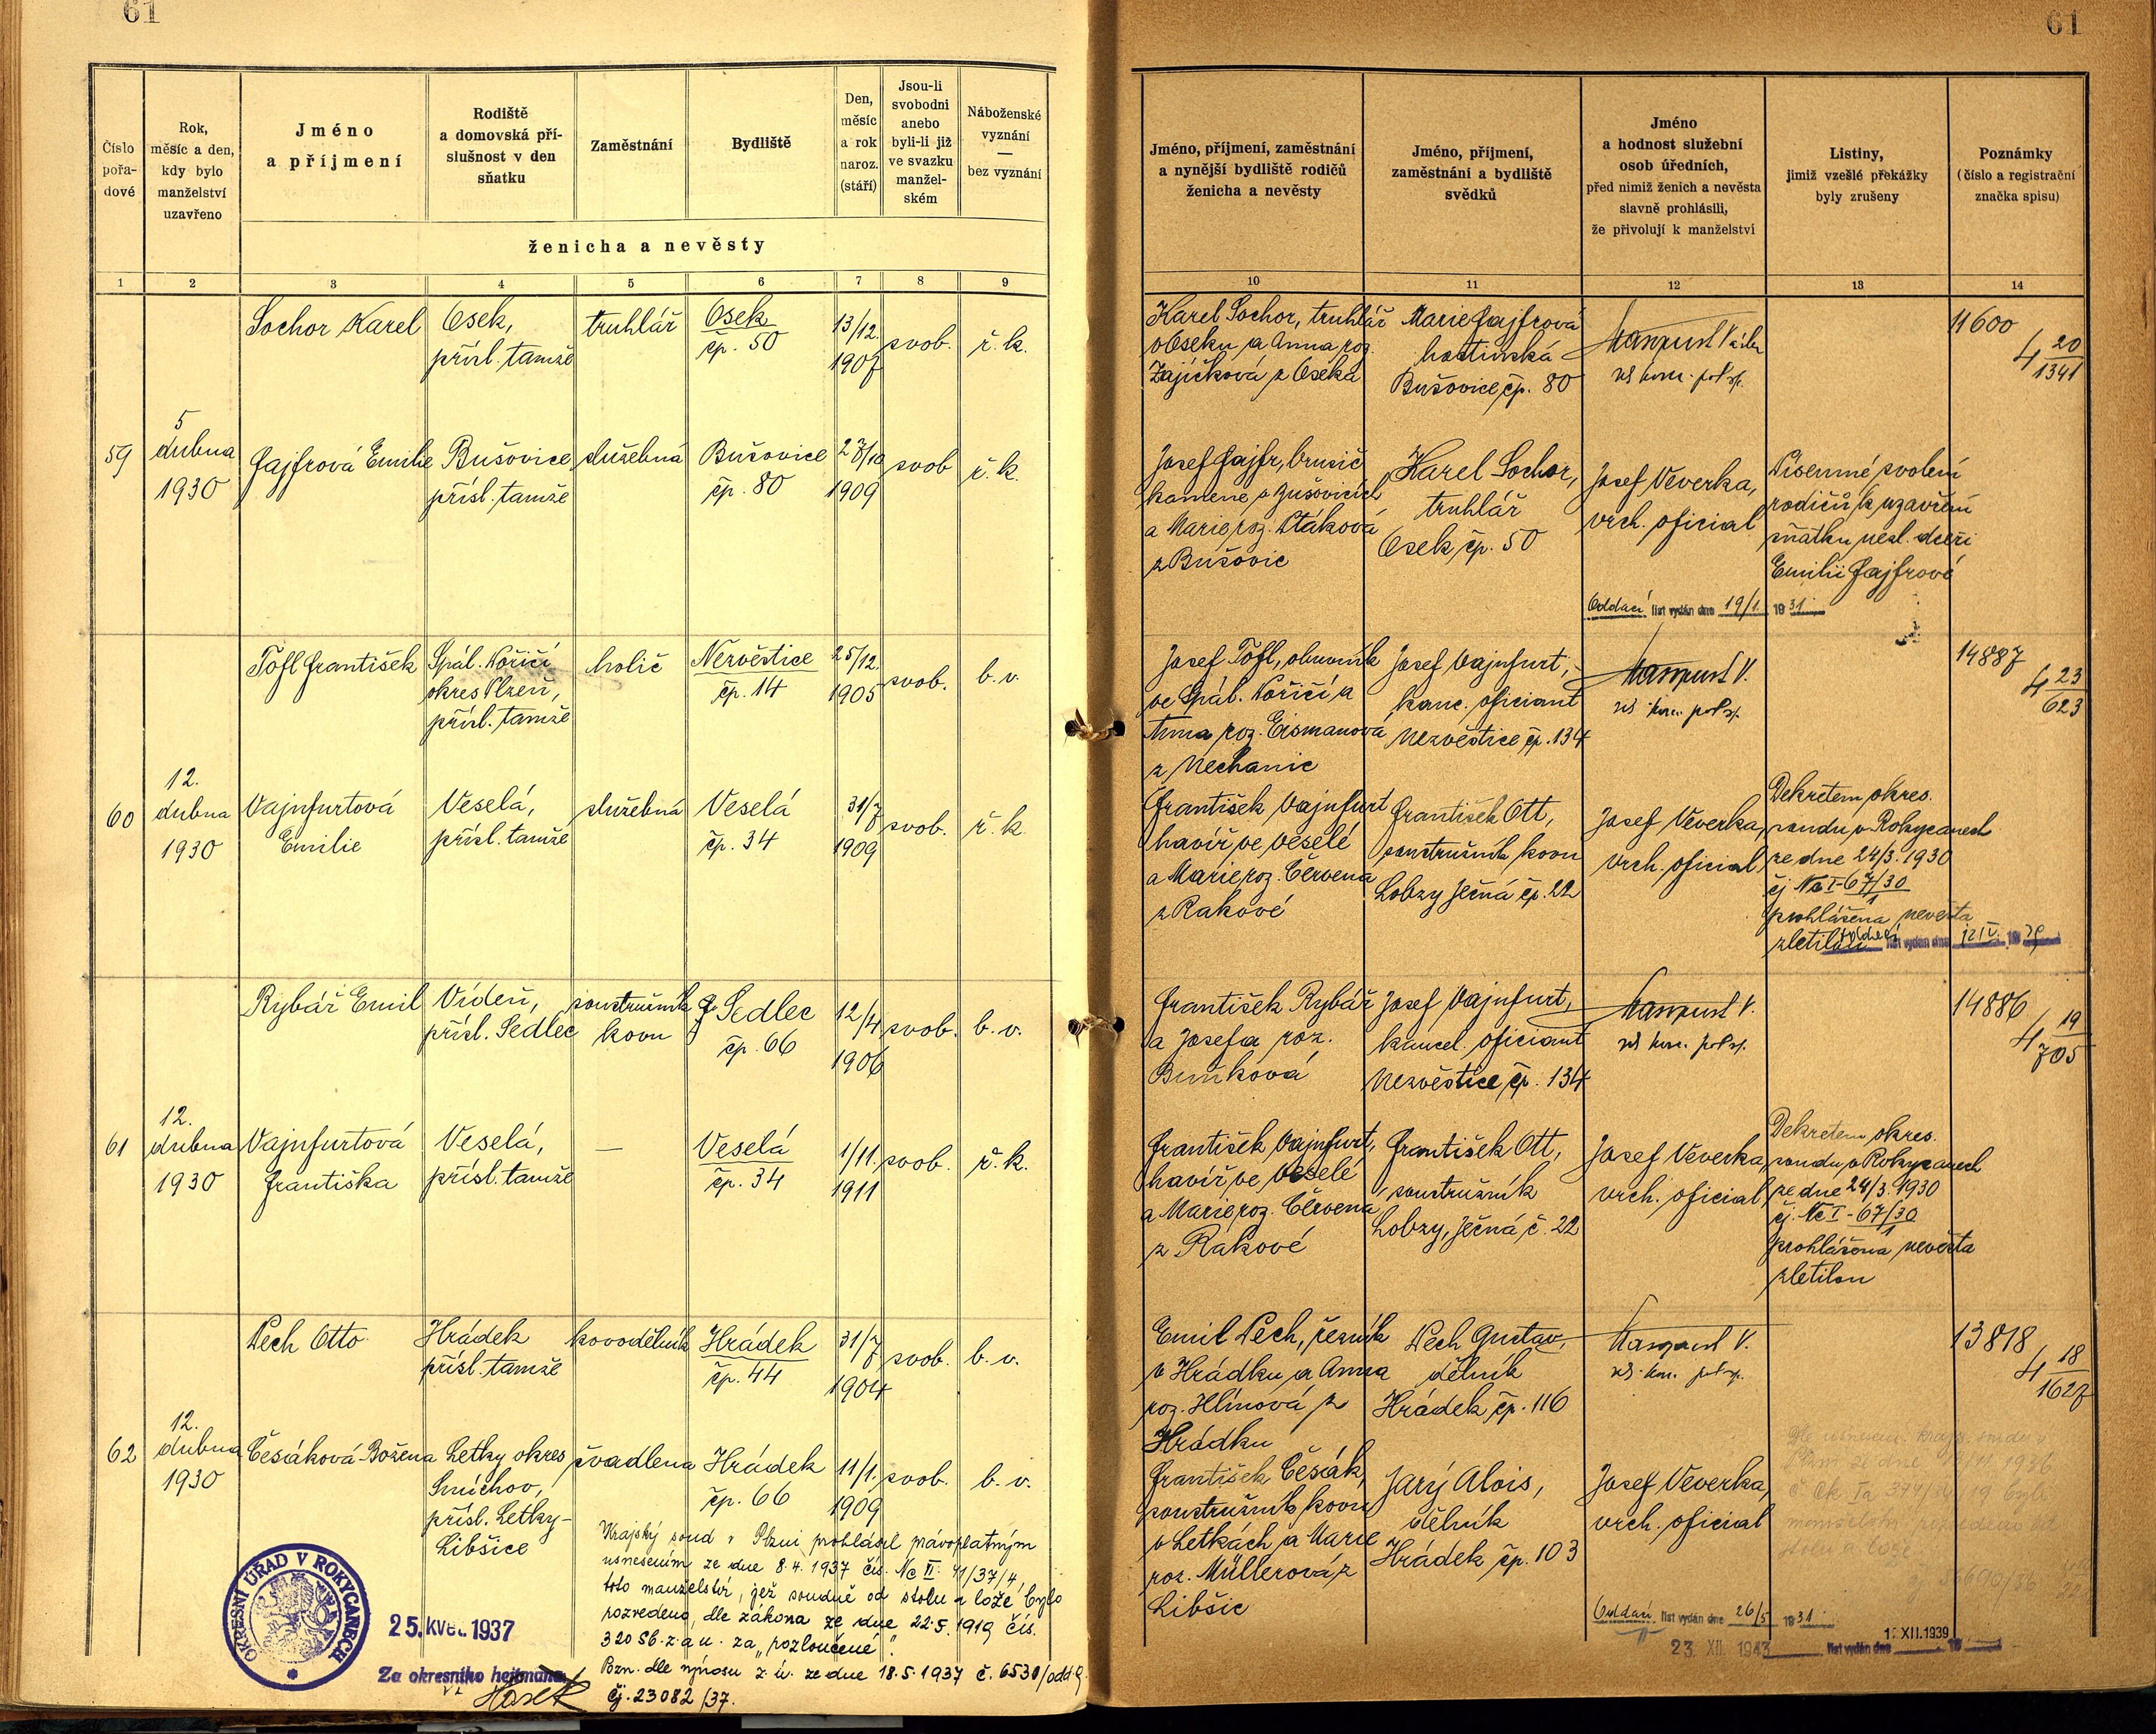 61
61
Číslo pořadové
Rok, měsíc a den, kdy bylo manželství uzavřeno
Jméno a příjmení
Rodiště a domovská příslušnost v den sňatku
Zaměstnání
Bydliště
Den, měsíc a rok naroz. (stáří)
Jsou-li svobodni anebo byli-li již ve svazku manželském
Náboženské vyznání — bez vyznání
ženicha a nevěsty
Jméno, příjmení, zaměstnání a nynější bydliště rodičů ženicha a nevěsty
Jméno, příjmení, zaměstnání a bydliště svědků
Jméno a hodnost služební osob úředních, před nimiž ženich a nevěsta slavně prohlásili, že přivolují k manželství
Listiny, jimiž vzešlé překážky byly zrušeny
Poznámky (číslo a registrační značka spisu)
1 2 3 4 5 6 7 8 9 10 11 12 13 14
Sochor Karel
Osek,
přísl. tamže
truhlář
Osek
čp. 50
13/12.
1907
svob.
ř. k.
Karel Sochor, truhlář
v Oseku a Anna roz.
Zajíčková z Oseka
Marie Fajfrová
hostinská
Bušovice, čp. 80
11600
4 20/1341
59
5
dubna
1930
Fajfrová Emilie
Bušovice
přísl. tamže
služebná
Bušovice
čp. 80
1909
svob
ř. k.
Josef Fajfr, brusič
kamene v Bušovicích
a Marie roz. Ptáková
z Bušovic
Karel Sochor,
truhlář
Osek, čp. 50
Josef Veverka,
vrch. oficial
Písemné svolení
rodičů k uzavření
sňatku nezl. dceři
Emilii Fajfrové
Oddací list vydán dne 19/1. 1931
Töfl František
Spál. Poříčí
okres Plzeň,
přísl. tamže
holič
Nezvěstice
čp. 14
25/12.
1905
svob.
b. v.
Josef Töfl, obuvník
ve Spál. Poříčí a
Anna roz. Eismanová
z Nechanic
Josef Vajnfurt,
kanc. oficiant
Nezvěstice čp. 134
14887
4 23/623
60
12.
dubna
1930
Vajnfurtová
Emilie
Veselá,
přísl. tamže
služebná
Veselá
čp. 34
31/7
1909
svob.
ř. k.
František Vajnfurt
havíř ve Veselé
a Marie roz. Červená
z Rakové
František Ott,
soustružník kovu
Lobzy Ječná čp. 22
Josef Veverka,
vrch. oficial
Dekretem okres.
soudu v Rokycanech
ze dne 24/3. 1930
čj. Nc I-67/30
prohlášena nevěsta
zletilou
list vydán dne
Rybář Emil
Vídeň,
přísl. Sedlec
soustružník
kovu
Sedlec
čp. 66
12/4
1906
svob.
b. v.
František Rybář
a Josefa roz.
Josef Vajnfurt,
kancel. oficiant
Nezvěstice, čp. 134
14886
4 19/705
61
12.
dubna
1930
Vajnfurtová
Františka
Veselá,
přísl. tamže
—
Veselá
čp. 34
1/11.
1911
svob.
ř. k.
František Vajnfurt,
havíř ve Veselé
a Marie roz. Červená
z Rakové
František Ott,
soustružník
Lobzy, Ječná č. 22
Josef Veverka,
vrch. oficial
Dekretem okres.
soudu v Rokycanech
ze dne 24/3. 1930
čj. Nc I-67/30
1
prohlášena nevěsta
zletilou
Pech Otto
Hrádek
přísl. tamže
kovodělník
Hrádek
čp. 44
31/7
1904
svob.
b. v.
Emil Pech, řezník
v Hrádku a Anna
roz. Hlínová z
Hrádku
Pech Gustav,
dělník
Hrádek čp. 116
13818
4 18/1627
62
12.
dubna
1930
Česáková Božena
Letky okres
Smíchov,
přísl. Letky-
Libšice
švadlena
Hrádek
čp. 66
11/1.
1909
svob.
b. v.
František Česák,
soustružník kovu
v Letkách a Marie
roz. Müllerová z
Libšic
Jarý Alois,
dělník
Hrádek čp. 103
Josef Veverka,
vrch. oficial
Krajský soud v Plzni prohlásil právoplatným
usnesením ze dne 8.4.1937 čís. Nc II. 41/37/4,
toto manželství, jež soudně od stolu a lože bylo
rozvedeno, dle zákona ze dne 22.5.1919 čís.
320 Sb. z. a n. za „rozloučené“.
Pzn. dle výnosu z. ú. ze dne 18.5.1937 č. 6530/odd. 9
čj. 23082/37.
OKRESNÍ ÚŘAD V ROKYCANECH
25. květ. 1937
Za okresního hejtmana
Oddací list vydán dne 26/5 1931
23. XII. 1943
XII. 1939
list vydán dne 19